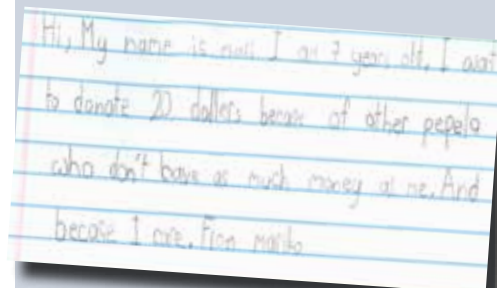 Hi, My name is I am 7 years old, I want
to donate 20 dollers becase of other pepelo
who don't have as much money as me. And
becase I care. From